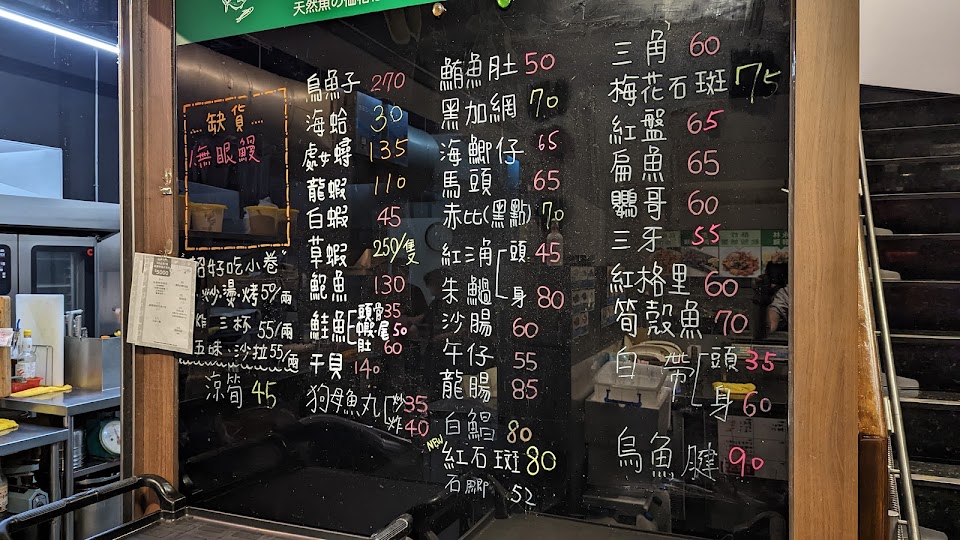 天然魚の価格
缺貨
無眼鰻
好吃小卷
炒.燙.烤50/兩
三杯 55/兩
五味、沙拉55/兩
涼筍 45
烏魚子 270
海蛤 30
處女蟳 135
龍蝦 110
白蝦 45
草蝦 250/隻
魚 130
鮭魚 頭骨35
蝦尾50
肚 60
干貝 140
狗母魚丸 炒35
炸40
鮪魚肚 50
黑加網 70
海鯽仔 65
馬頭 65
赤比(黑點) 70
紅 頭 45
朱鰮 身 80
沙腸 60
午仔 55
龍腸 85
白鯧 80
NEW 紅石斑 80
石鯽 52
三角 60
梅花石斑 75
紅盤 65
扁魚 65
鸚哥 60
三牙 55
紅格里 60
筍殼魚 70
白帶 頭 35
身 60
烏魚腱 90